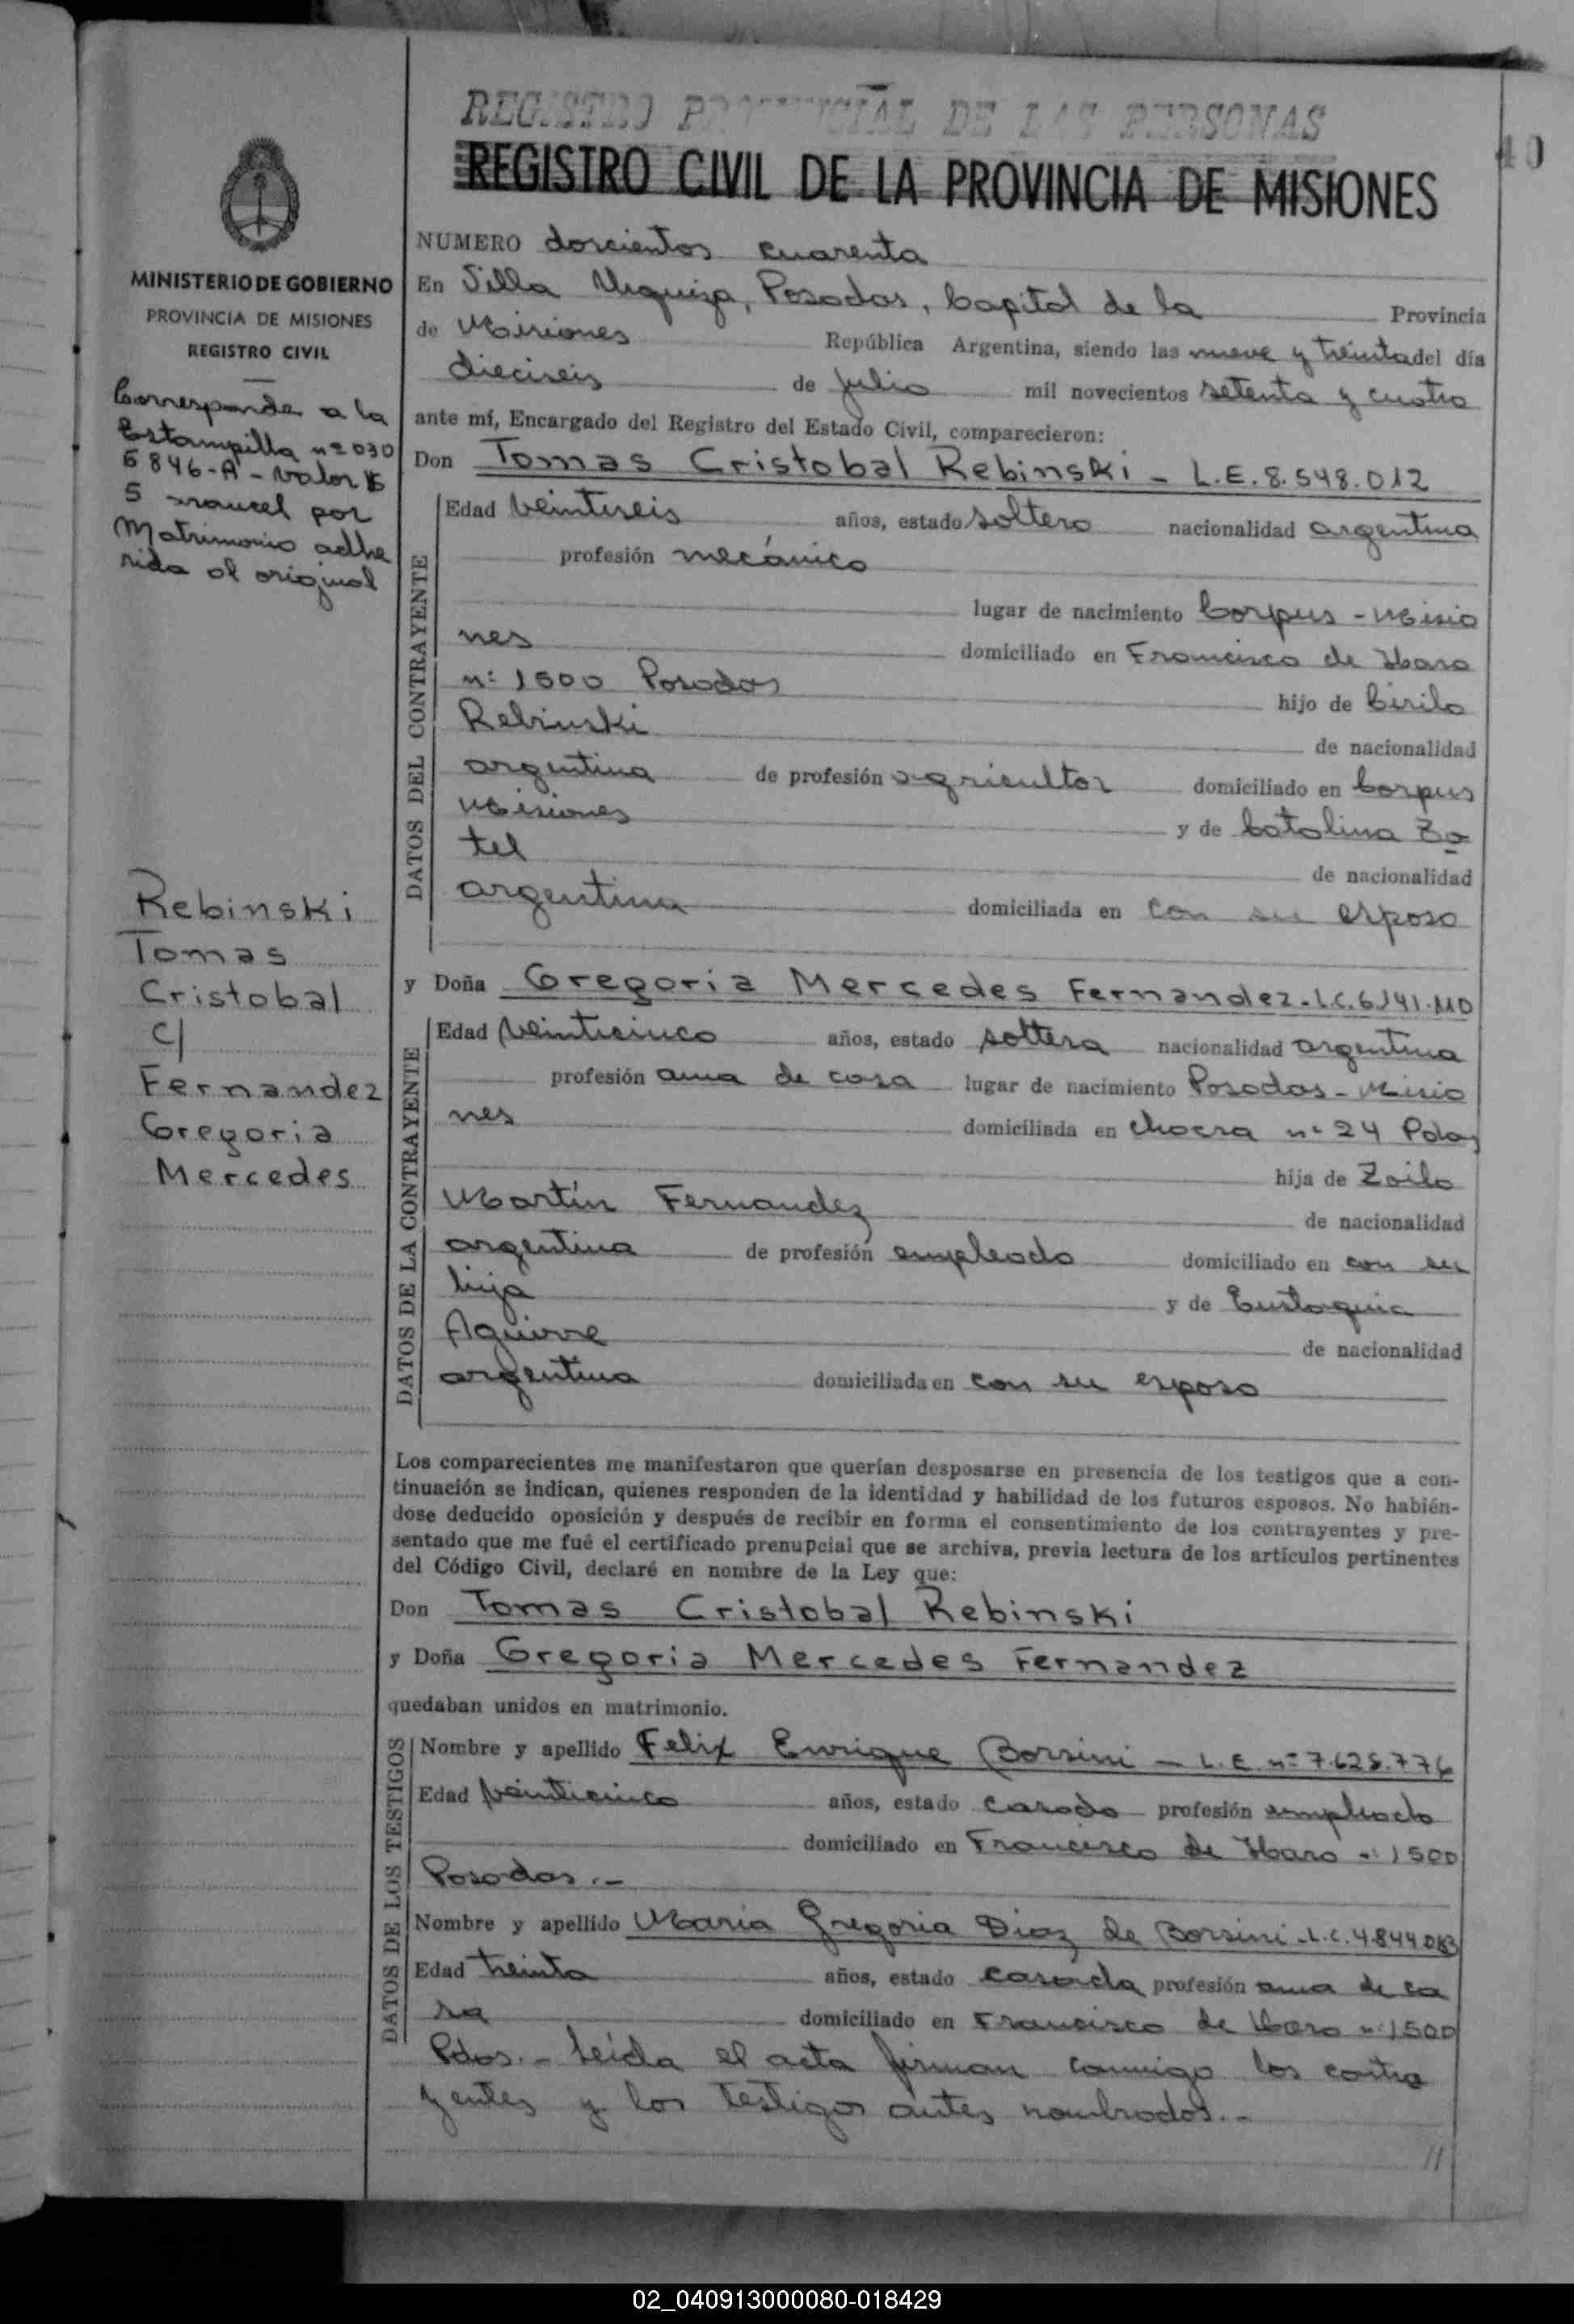 REGISTRO PROVINCIAL DE LAS PERSONAS
REGISTRO CIVIL DE LA PROVINCIA DE MISIONES
40
MINISTERIO DE GOBIERNO
PROVINCIA DE MISIONES
REGISTRO CIVIL
Corresponde a la
Estampilla nº 030
6846-A - valor $
5 mausel por
Matrimonio adhe
rida al original
Rebinski
Tomas
Cristobal
c/
Fernandez
Gregoria
Mercedes
NUMERO doscientos cuarenta
En Villa Urquiza, Posadas, Capital de la Provincia
de Misiones República Argentina, siendo las nueve y treinta del día
dieciseis de Julio mil novecientos setenta y cuatro
ante mí, Encargado del Registro del Estado Civil, comparecieron:
Don Tomas Cristobal Rebinski - L.E. 8.548.012
DATOS DEL CONTRAYENTE
Edad veintiseis años, estado soltero nacionalidad argentina
profesión mecánico
lugar de nacimiento Corpus - Misio
nes domiciliado en Francisco de Haro
nº 1500 Posadas hijo de Cirilo
Rebinski de nacionalidad
argentina de profesión agricultor domiciliado en Corpus
Misiones y de Catalina Za
tel de nacionalidad
argentina domiciliada en con su esposo
y Doña Gregoria Mercedes Fernandez - L.C. 6.141.110
DATOS DE LA CONTRAYENTE
Edad veinticinco años, estado soltera nacionalidad argentina
profesión ama de casa lugar de nacimiento Posadas - Misio
nes domiciliada en chacra nº 24 Pdas
hija de Zoilo
Martín Fernandez de nacionalidad
argentina de profesión empleado domiciliado en con su
hija y de Eustaquia
Aguirre de nacionalidad
argentina domiciliada en con su esposo
Los comparecientes me manifestaron que querían desposarse en presencia de los testigos que a con-
tinuación se indican, quienes responden de la identidad y habilidad de los futuros esposos. No habién-
dose deducido oposición y después de recibir en forma el consentimiento de los contrayentes y pre-
sentado que me fué el certificado prenupcial que se archiva, previa lectura de los artículos pertinentes
del Código Civil, declaré en nombre de la Ley que:
Don Tomas Cristobal Rebinski
y Doña Gregoria Mercedes Fernandez
quedaban unidos en matrimonio.
DATOS DE LOS TESTIGOS
Nombre y apellido Felix Enrique Borsini - L.E. nº 7.628.776
Edad veinticinco años, estado casado profesión empleado
domiciliado en Francisco de Haro nº 1500
Posadas.-
Nombre y apellido Maria Gregoria Diaz de Borsini - L.C. 4.844.083
Edad treinta años, estado casada profesión ama de ca
sa domiciliado en Francisco de Haro nº 1500
Pdas.- Leída el acta firman conmigo los contra
yentes y los testigos antes nombrados.-
//
02_040913000080-018429